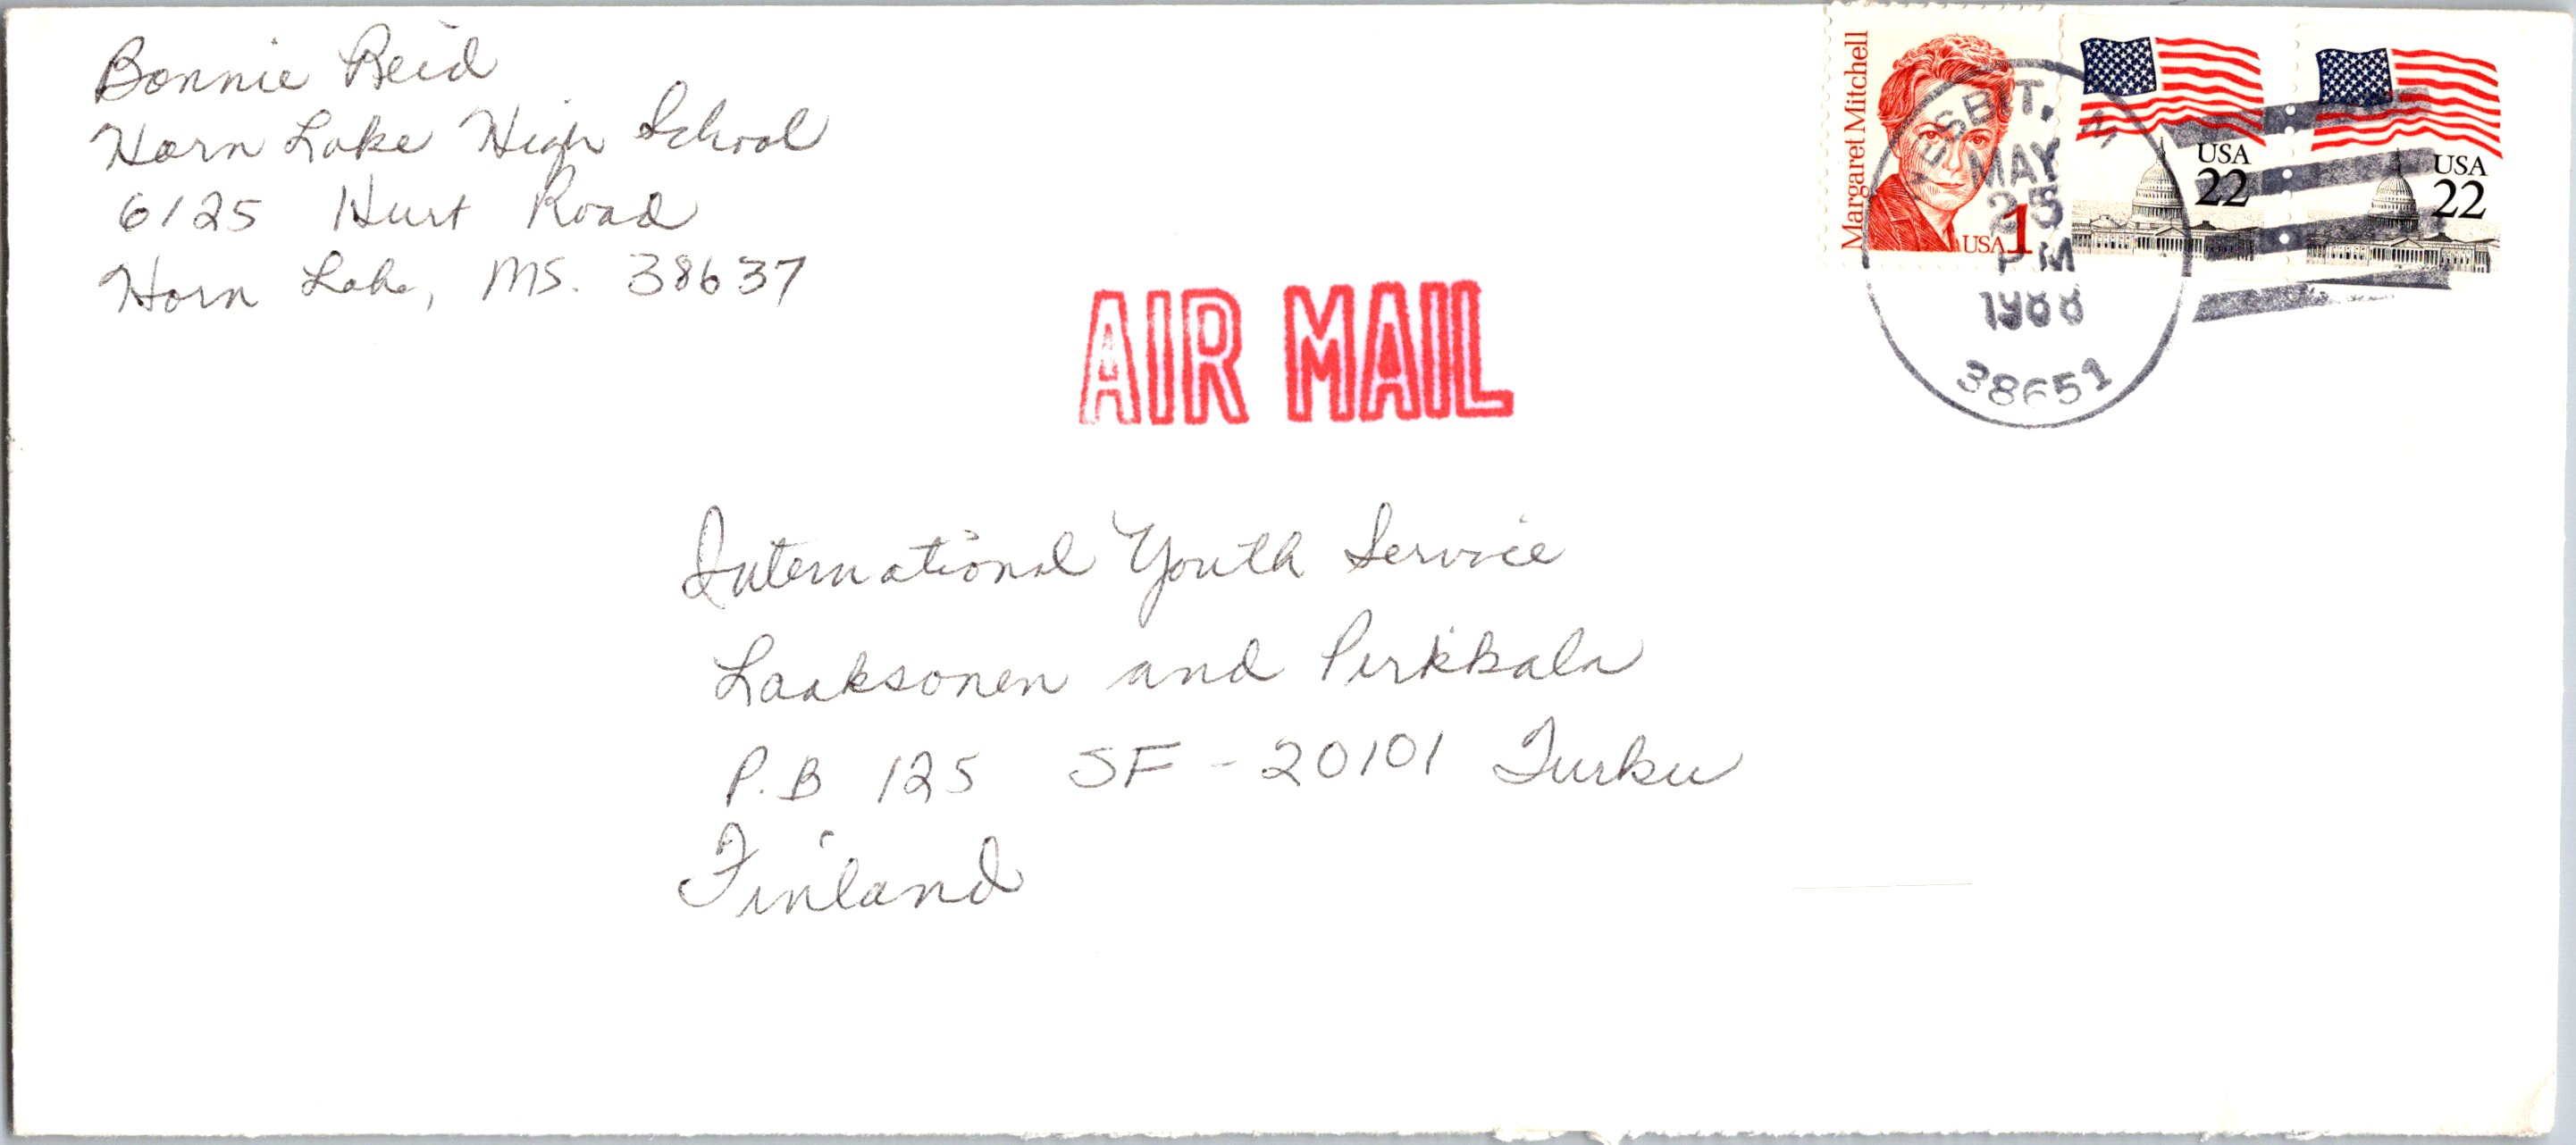 Bonnie Reid
Horn Lake High School
6125 Hurt Road
Horn Lake, MS. 38637
AIR MAIL
Margaret Mitchell
USA 1
USA
22
USA
22
MAY
25
PM
1988
38651
International Youth Service
Laaksonen and Pirkkala
P.B 125 SF - 20101 Turku
Finland